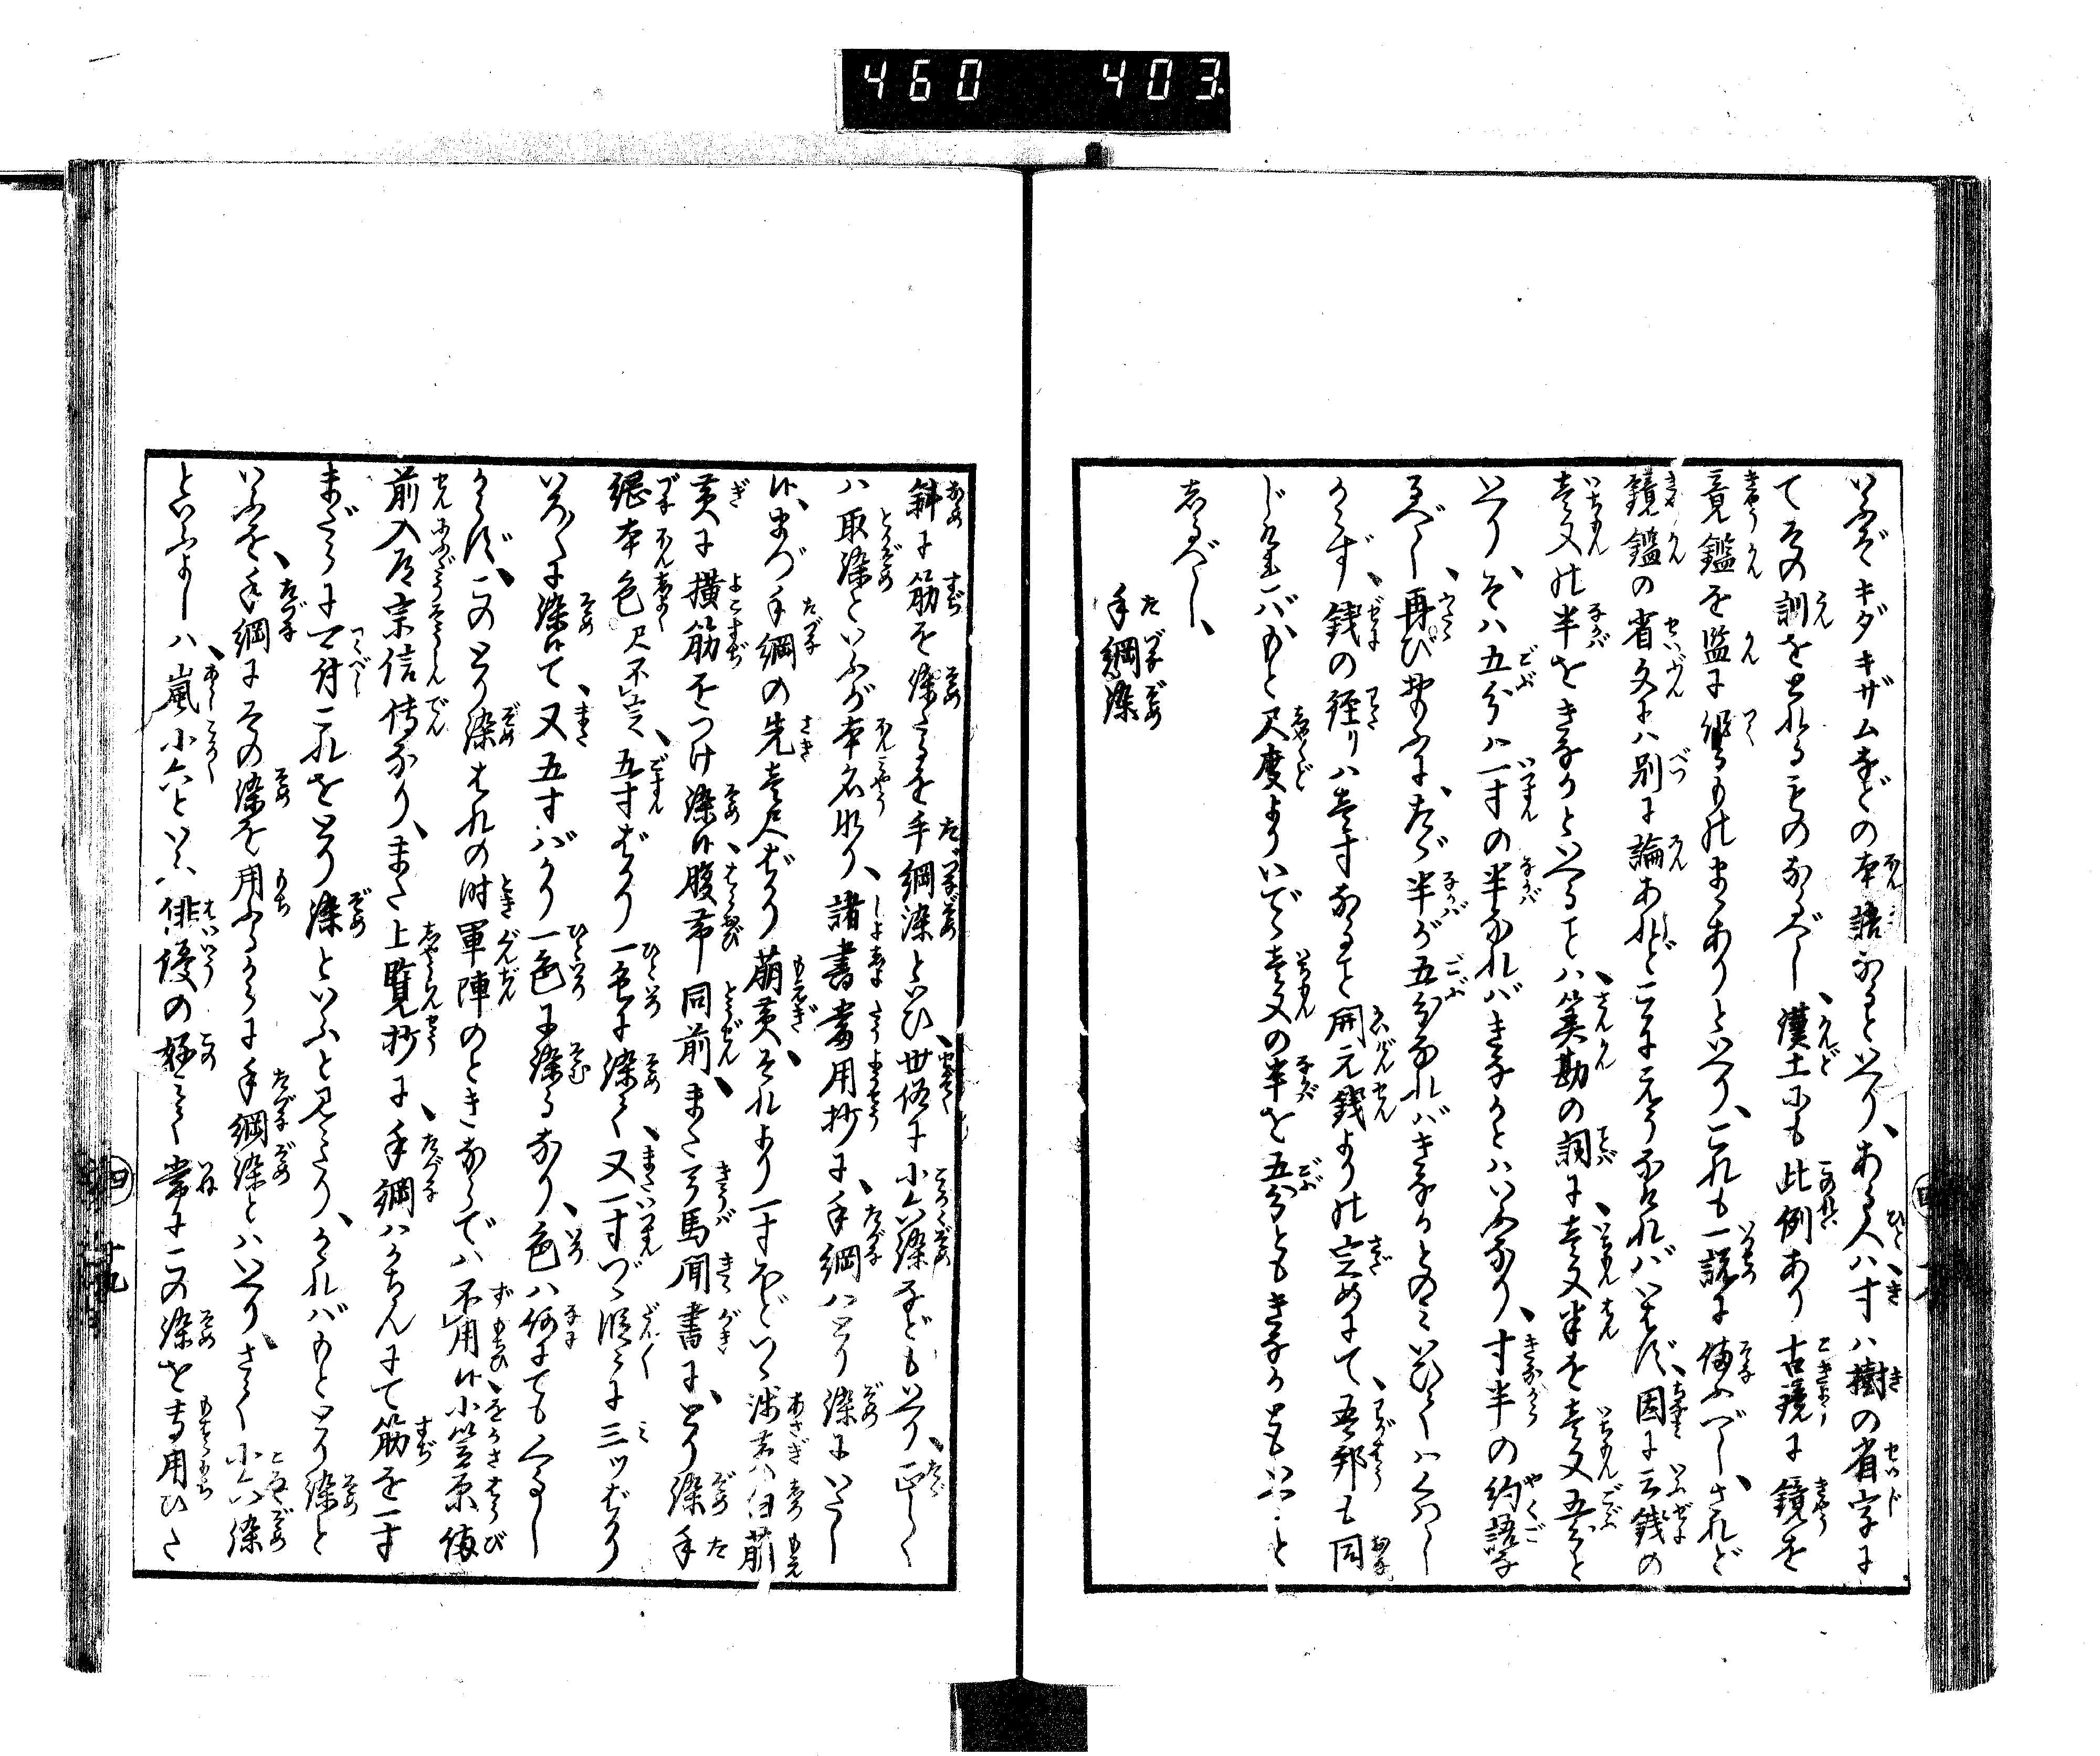 460 403
いふぞキダキザムなどの本語なるといへり、ある人ハ寸ハ樹の省字に
てその訓をとれるものなるべし、漢土にも此例あり古鏡に鏡を
竟鑑を監に作りものまゝありといへり、これも一説に備ふべし、されど
鏡鑑の省文にハ別に論あれどこゝにえう不されバいはず、因に云銭の
壱文の半をきなかといへることハ、算勘の詞に、壱文半を壱文五分と
いへり、そハ五分ハ一寸の半なれバきなかとハいふなり、寸半の約語学
るべし、再び攷ふに、たゞ半が五分なれバきなかとのミいひてハくハし
からず、銭の径りハ壱寸なること開元銭よりの定めにて、吾邦も同
じけれバ、もと尺度よりいでゝ壱文の半を五分ともきなかともいふこと
しるべし、
手綱染
斜に筋を染たるを手綱染といひ、世俗に小六染などもいへり、正しく
ハ取染といふが本名也、諸書当用抄に、手綱ハとり染にいたし
候、まづ手綱の先壱尺ばかり萌黄、それより一寸ほどいく浅黄白萌
黄に横筋をつけ染候、腹帯同前、また弓馬聞書に、とり染手
綱本色尺不定、五寸ばかり一色に染て、又一寸づゝ段々に三ツばかり
いろ〳〵に染候て、又五寸バかり一色に染るなり、色ハ何にてもくるし
からず、このとり染はれの時軍陣のときならでハ不用候、小笠原備
前入道宗信伝なり、また上覧抄に、手綱ハかちんにて筋を一寸
まだらに可付これをとり染といふと見えたり、かゝれバもととり染と
いふを、手綱にその染を用ふるからに手綱染とハいへり、さて小六染
といふよしハ、嵐小六といへる俳優の好ミて常にこの染を専用ひた
四 廿九